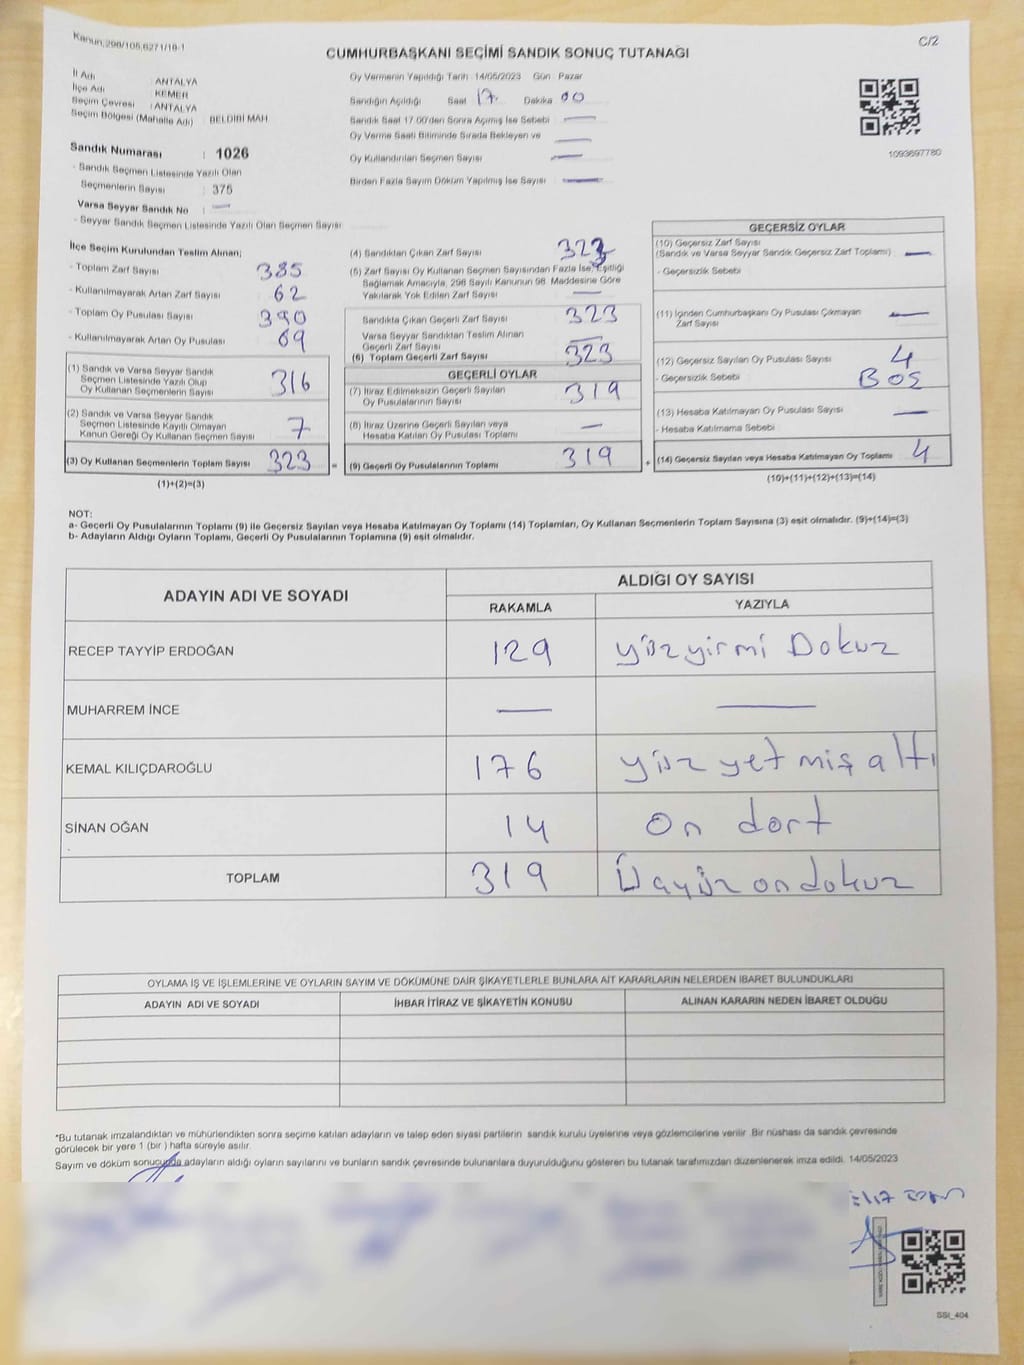 Kanun,298/105,6271/18-1
C/2
CUMHURBAŞKANI SEÇİMİ SANDIK SONUÇ TUTANAĞI
İl Adı : ANTALYA
İlçe Adı : KEMER
Seçim Çevresi : ANTALYA
Seçim Bölgesi (Mahalle Adı) : BELDİBİ MAH
Sandık Numarası : 1026
- Sandık Seçmen Listesinde Yazılı Olan
Seçmenlerin Sayısı : 375
Varsa Seyyar Sandık No : —
- Seyyar Sandık Seçmen Listesinde Yazılı Olan Seçmen Sayısı
Oy Vermenin Yapıldığı Tarih 14/05/2023 Gün Pazar
Sandığın Açıldığı Saat 17. Dakika 00
Sandık Saat 17.00'den Sonra Açımış İse Sebebi —
Oy Verme Saati Bitiminde Sırada Bekleyen ve
Oy Kullandırılan Seçmen Sayısı —
Birden Fazla Sayım Döküm Yapılmış İse Sayısı —
1093697780
İlçe Seçim Kurulundan Teslim Alınan;
- Toplam Zarf Sayısı 385
- Kullanılmayarak Artan Zarf Sayısı 62
- Toplam Oy Pusulası Sayısı 390
- Kullanılmayarak Artan Oy Pusulası 69
(1) Sandık ve Varsa Seyyar Sandık
Seçmen Listesinde Yazılı Olup
Oy Kullanan Seçmenlerin Sayısı 316
(2) Sandık ve Varsa Seyyar Sandık
Seçmen Listesinde Kayıtlı Olmayan
Kanun Gereği Oy Kullanan Seçmen Sayısı 7
(3) Oy Kullanan Seçmenlerin Toplam Sayısı 323
(1)+(2)=(3)
(4) Sandıktan Çıkan Zarf Sayısı 323
(5) Zarf Sayısı Oy Kullanan Seçmen Sayısından Fazla İse, Eşitliği
Sağlamak Amacıyla, 298 Sayılı Kanunun 98. Maddesine Göre
Yakılarak Yok Edilen Zarf Sayısı —
Sandıkta Çıkan Geçerli Zarf Sayısı 323
Varsa Seyyar Sandıktan Teslim Alınan
Geçerli Zarf Sayısı —
(6) Toplam Geçerli Zarf Sayısı 323
GEÇERLİ OYLAR
(7) İtiraz Edilmeksizin Geçerli Sayılan
Oy Pusulalarının Sayısı 319
(8) İtiraz Üzerine Geçerli Sayılan veya
Hesaba Katılan Oy Pusulası Toplamı —
= (9) Geçerli Oy Pusulalarının Toplamı 319
GEÇERSİZ OYLAR
(10) Geçersiz Zarf Sayısı
(Sandık ve Varsa Seyyar Sandık Geçersiz Zarf Toplamı) —
- Geçersizlik Sebebi
(11) İçinden Cumhurbaşkanı Oy Pusulası Çıkmayan
Zarf Sayısı —
(12) Geçersiz Sayılan Oy Pusulası Sayısı 4
- Geçersizlik Sebebi BOŞ
(13) Hesaba Katılmayan Oy Pusulası Sayısı —
- Hesaba Katılmama Sebebi
+ (14) Geçersiz Sayılan veya Hesaba Katılmayan Oy Toplamı 4
(10)+(11)+(12)+(13)=(14)
NOT:
a- Geçerli Oy Pusulalarının Toplamı (9) ile Geçersiz Sayılan veya Hesaba Katılmayan Oy Toplamı (14) Toplamları, Oy Kullanan Seçmenlerin Toplam Sayısına (3) eşit olmalıdır. (9)+(14)=(3)
b- Adayların Aldığı Oyların Toplamı, Geçerli Oy Pusulalarının Toplamına (9) eşit olmalıdır.
ADAYIN ADI VE SOYADI
ALDIĞI OY SAYISI
RAKAMLA YAZIYLA
RECEP TAYYİP ERDOĞAN 129 yüzyirmi Dokuz
MUHARREM İNCE — —
KEMAL KILIÇDAROĞLU 176 yüz yetmiş altı
SİNAN OĞAN 14 On dort
TOPLAM 319 Üçyüz ondokuz
OYLAMA İŞ VE İŞLEMLERİNE VE OYLARIN SAYIM VE DÖKÜMÜNE DAİR ŞİKAYETLERLE BUNLARA AİT KARARLARIN NELERDEN İBARET BULUNDUKLARI
ADAYIN ADI VE SOYADI İHBAR İTİRAZ VE ŞİKAYETİN KONUSU ALINAN KARARIN NEDEN İBARET OLDUĞU
*Bu tutanak imzalandıktan ve mühürlendikten sonra seçime katılan adayların ve talep eden siyasi partilerin sandık kurulu üyelerine veya gözlemcilerine verilir. Bir nüshası da sandık çevresinde
görülecek bir yere 1 (bir ) hafta süreyle asılır.
Sayım ve döküm sonucunda adayların aldığı oyların sayılarını ve bunların sandık çevresinde bulunanlara duyurulduğunu gösteren bu tutanak tarafımızdan düzenlenerek imza edildi. 14/05/2023
SSI_404